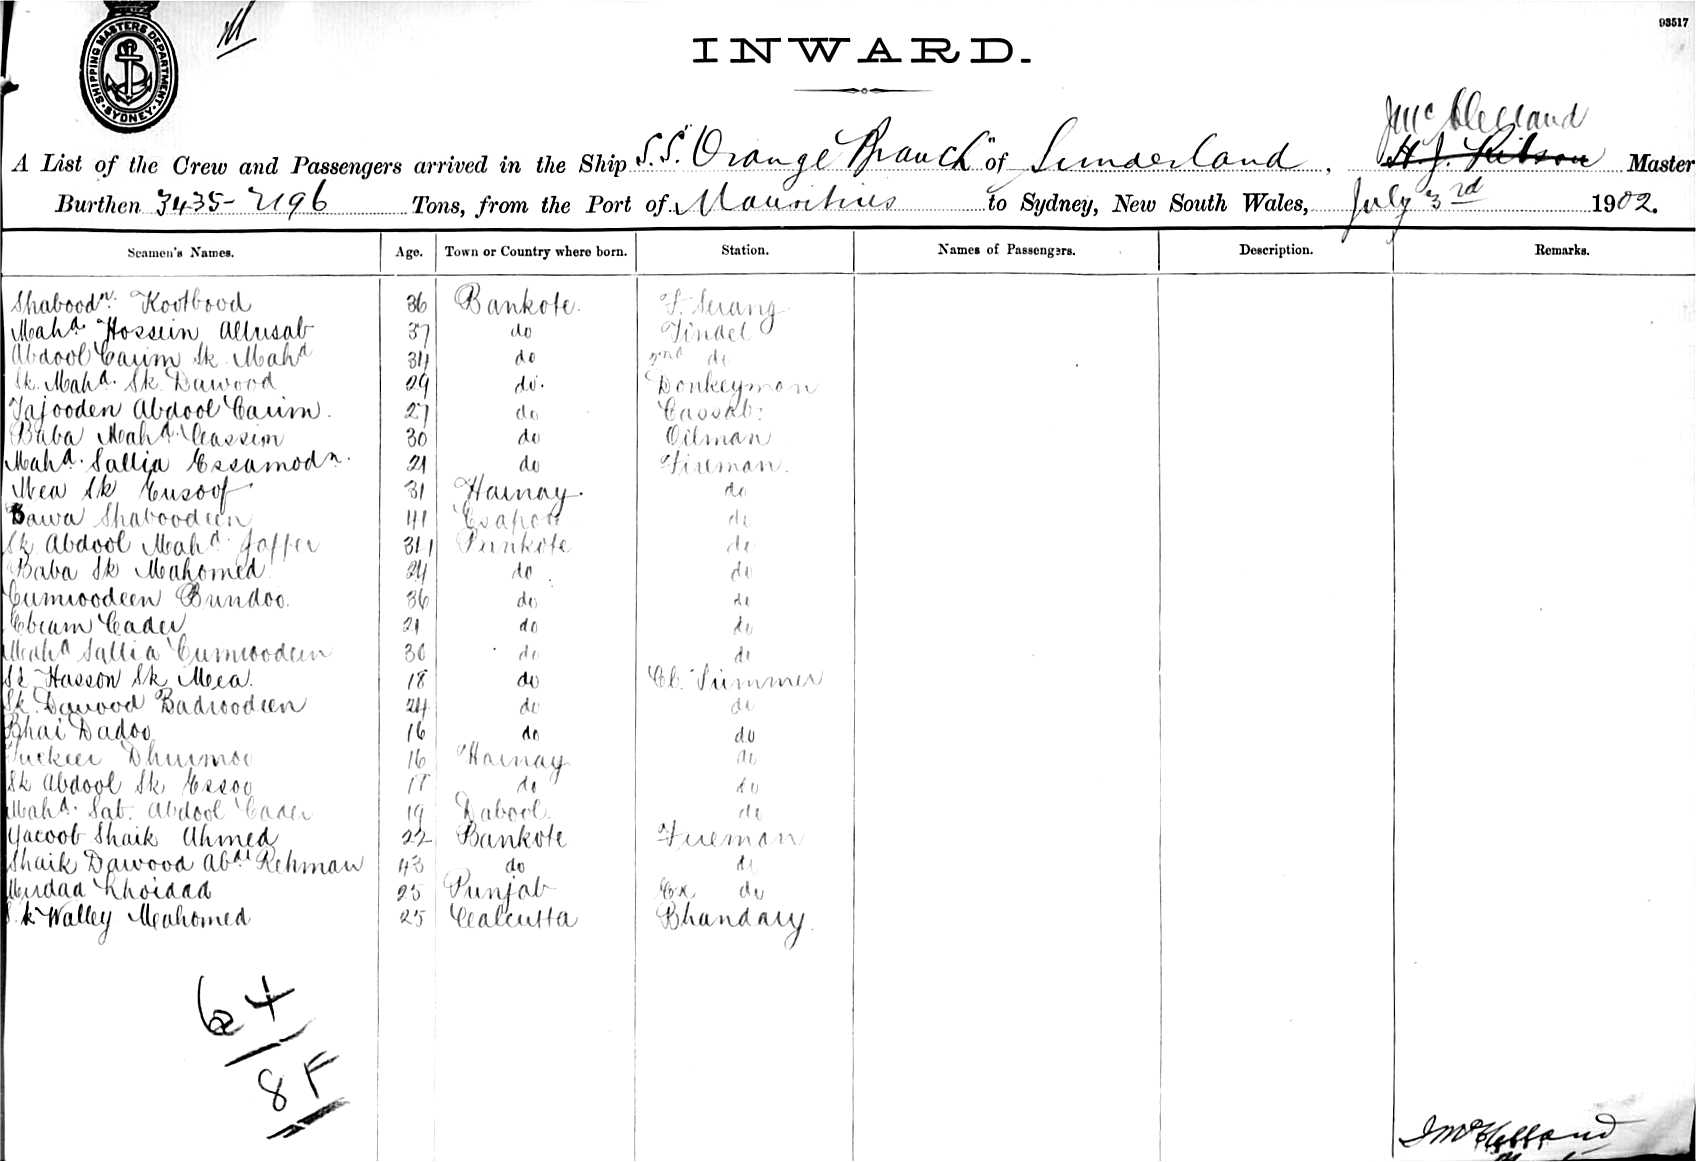 93517
SHIPPING MASTERS DEPARTMENT
SYDNEY
INWARD.
J Mc Clelland
A List of the Crew and Passengers arrived in the Ship S.S. "Orange Branch" of Sunderland, H. J. Kitson Master
Burthen 3435-2196 Tons, from the Port of Mauritius to Sydney, New South Wales, July 3rd 1902.
Seamen's Names. Age. Town or Country where born. Station. Names of Passengers. Description. Remarks.
Shaboodn. Kootbood 36 Bankote. F. Serang
Mahd. Hossein Allusab 37 do Tindel
Abdool Carim Sk. Mahd 34 do 2nd do
Sk. Mahd. Sk. Dawood 29 do. Donkeyman
Tajooden Abdool Carim. 27 do Cassab:
Baba Mahd. Cassim 30 do Oilman
Mahd. Sallia Essamodn. 21 do Fireman.
Mea Sk Eusoof 31 Harnay. do
Bawa Shaboodeen 41 do
Sk Abdool Mahd. Jaffer 34 Bankote do
Baba Sk Mahomed 24 do do
Cumroodeen Bundoo. 36 do do
Ebram Cader 21 do do
Mahd Sallia Cumroodeen 30 do do
Sk Hasson Sk Mea. 18 do Cl. Trimmer
Sk. Dawood Badroodeen 24 do do
Bhai Dadoo 16 do do
Dhurmoo 16 Harnay do
Sk Abdool Sk Essoo 18 do do
Mahd. Sab. Abdool Cader 19 Dabool. do
Yacoob Shaik Ahmed 22 Bankote Fireman
Shaik Dawood Abdl Rehman 43 do do
Khoidad 25 Punjab Ex do
Sk Walley Mahomed 25 Calcutta Bhandary.
64
8 F
J McClelland